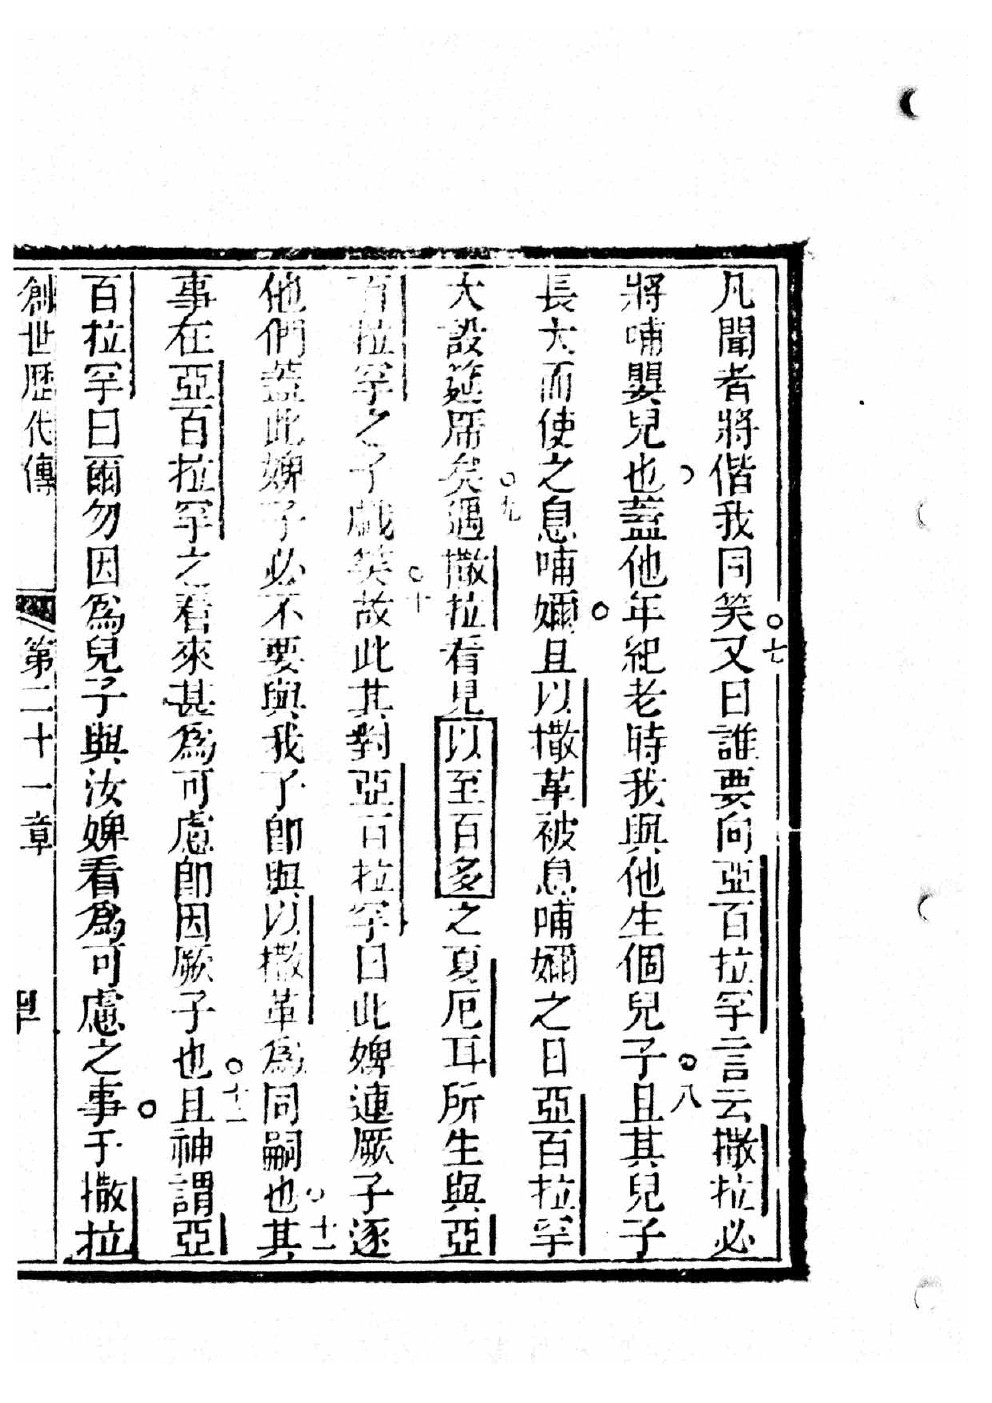 凡聞者將偕我同笑○七又曰誰要向亞百拉罕言云撒拉必
將哺嬰兒也蓋他年紀老時我與他生個兒子○八且其兒子
長大而使之息哺嬭○且以撒革被息哺嬭之日亞百拉罕
大設筵席矣○九遇撒拉看見以至百多之夏厄耳所生與亞
百拉罕之子戲笑○十故此其對亞百拉罕曰此婢連厥子逐
他們蓋此婢子必不要與我子卽與以撒革為同嗣也○十一其
事在亞百拉罕之看來甚為可慮卽因厥子也○十二且神謂亞
百拉罕曰爾勿因為兒子與汝婢看為可慮之事○于撒拉
創世歷代傳 第二十一章